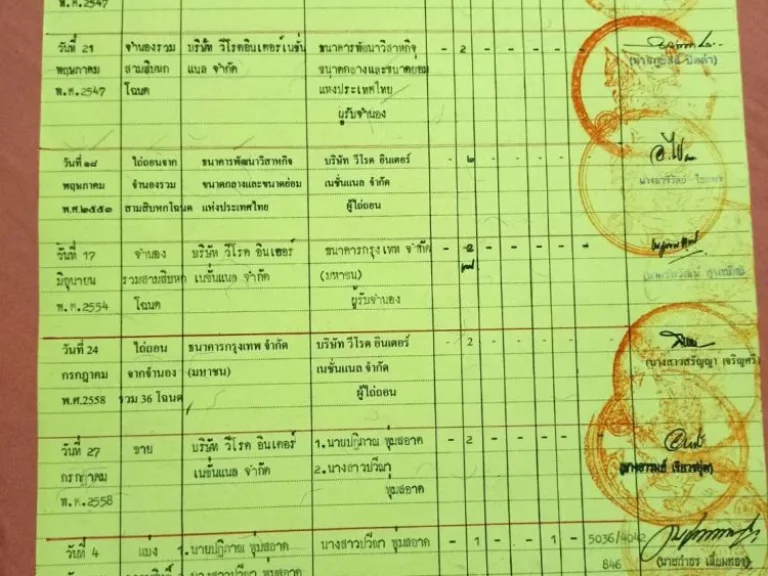 พ.ศ.2547
วันที่ 21 จำนองรวม บริษัท วีโรคอินเตอร์เนชั่น ธนาคารพัฒนาวิสาหกิจ - 2 - - - - -
พฤษภาคม สามสิบหก แนล จำกัด ขนาดกลางและขนาดย่อม
พ.ศ.2547 โฉนด แห่งประเทศไทย
ผู้รับจำนอง
วันที่ ๑๘ ไถ่ถอนจาก ธนาคารพัฒนาวิสาหกิจ บริษัท วีโรค อินเตอร์ - ๒ - - - - -
พฤษภาคม จำนองรวม ขนาดกลางและขนาดย่อม เนชั่นแนล จำกัด
พ.ศ.๒๕๕๓ สามสิบหกโฉนด แห่งประเทศไทย ผู้ไถ่ถอน
วันที่ 17 จำนอง บริษัท วีโรค อินเตอร์ ธนาคารกรุงเทพ จำกัด - 2 - - - - -
มิถุนายน รวมสามสิบหก เนชั่นแนล จำกัด (มหาชน)
พ.ศ.2554 โฉนด ผู้รับจำนอง
วันที่ 24 ไถ่ถอน ธนาคารกรุงเทพ จำกัด บริษัท วีโรค อินเตอร์ - 2 - - - - -
กรกฎาคม จากจำนอง (มหาชน) เนชั่นแนล จำกัด (นางสาวสรัญญา เจริญศรี)
พ.ศ.2558 รวม 36 โฉนด ผู้ไถ่ถอน
วันที่ 27 ขาย บริษัท วีโรค อินเตอร์ 1.นายปฏิภาณ พุ่มสอาด - 2 - - - - -
กรกฎาคม เนชั่นแนล จำกัด 2.นางสาวปวีณา
พ.ศ.2558 พุ่มสอาด
วันที่ 4 แบ่ง 1.นายปฏิภาณ พุ่มสอาด นางสาวปวีณา พุ่มสอาด - 1 - - 1 - 5036/4042
846 (นายกำธร เลี่ยมทอง)